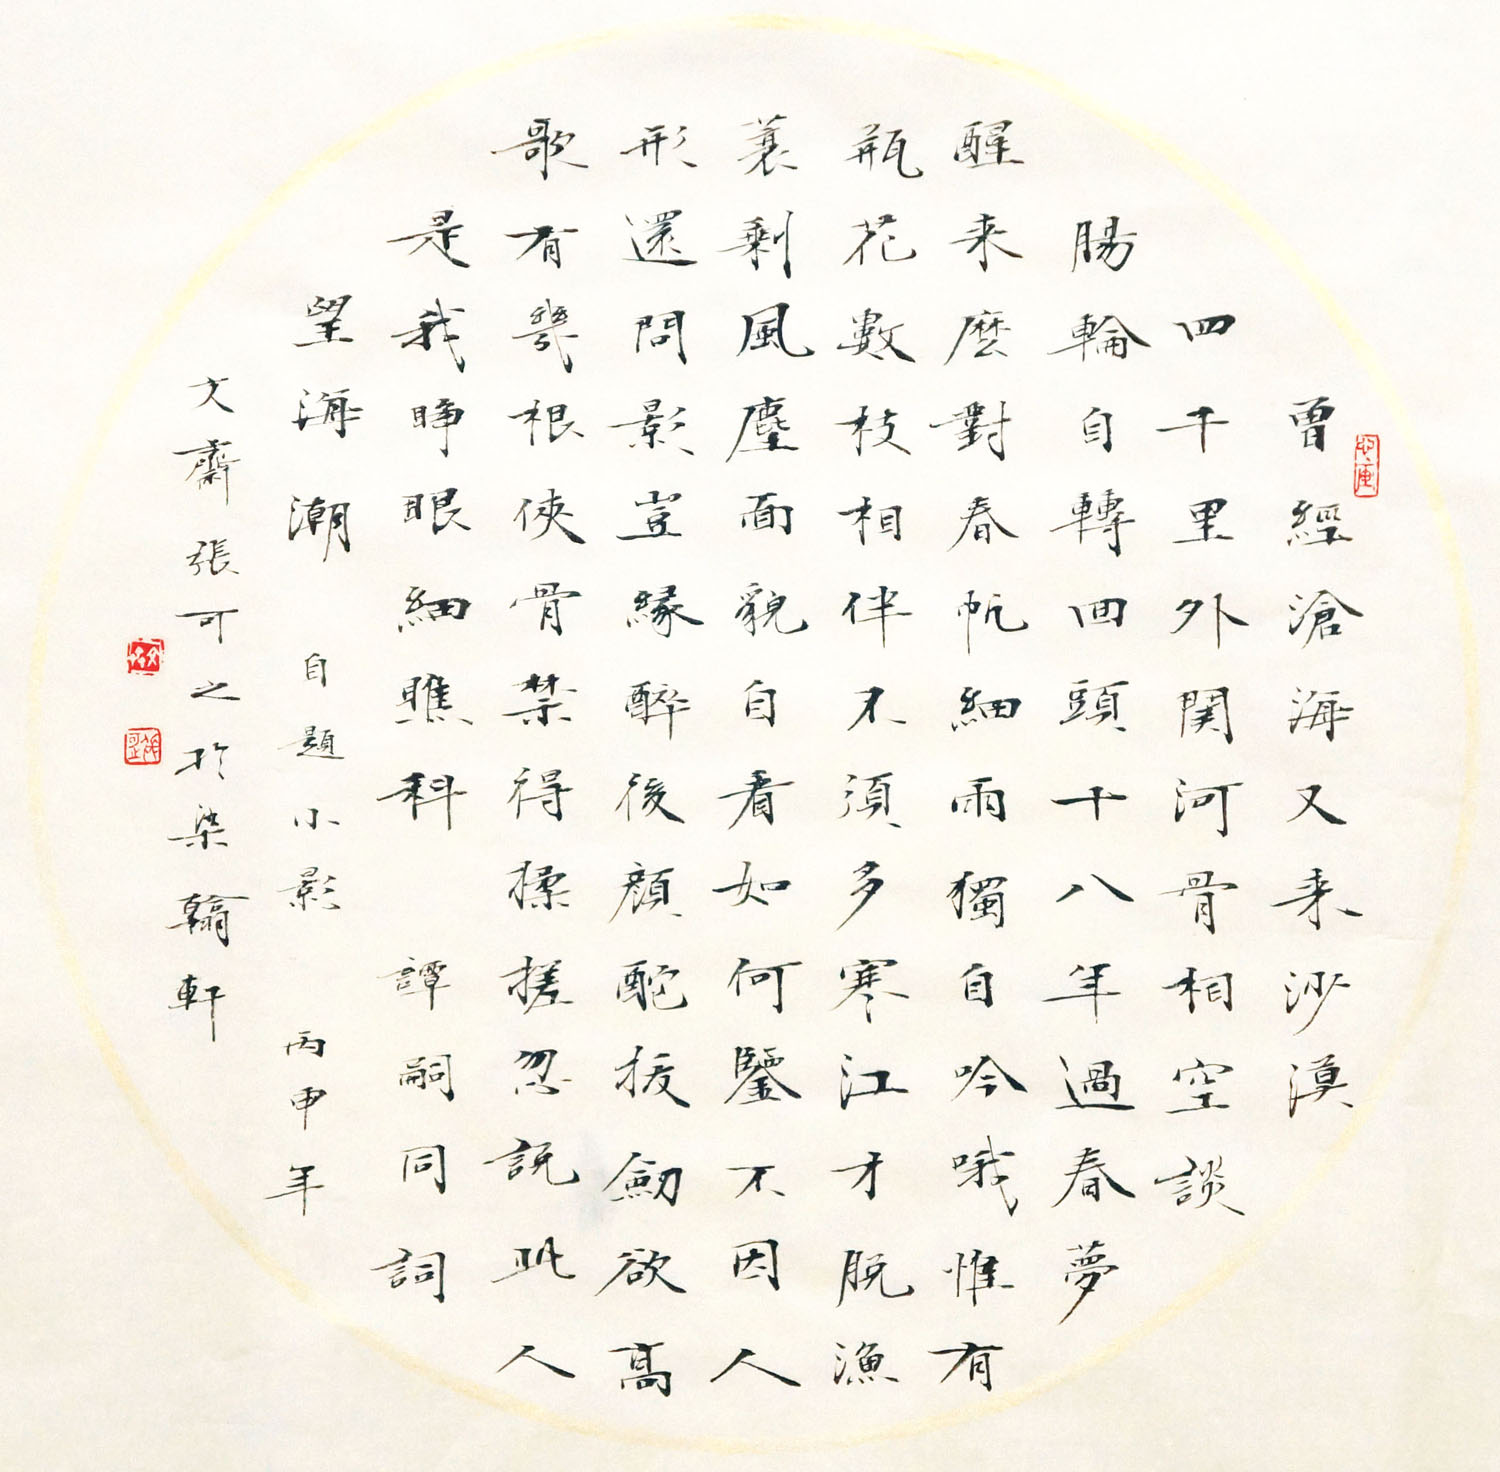 曾經滄海又来沙漠
四千里外関河骨相空談
腸輪自轉回頭十八年過春夢
醒来麼對春帆細雨獨自吟哦惟有
瓶花數枝相伴不須多寒江才脱漁
蓑剩風塵面貌自看如何鑒不因人
形還問影豈緣醉後顔酡拔劍欲高
歌有幾根俠骨禁得揉搓忽説此人
是我睜眼細瞧科 譚嗣同詞
望海潮 自題小影 丙申年
文齋張可之於染翰軒